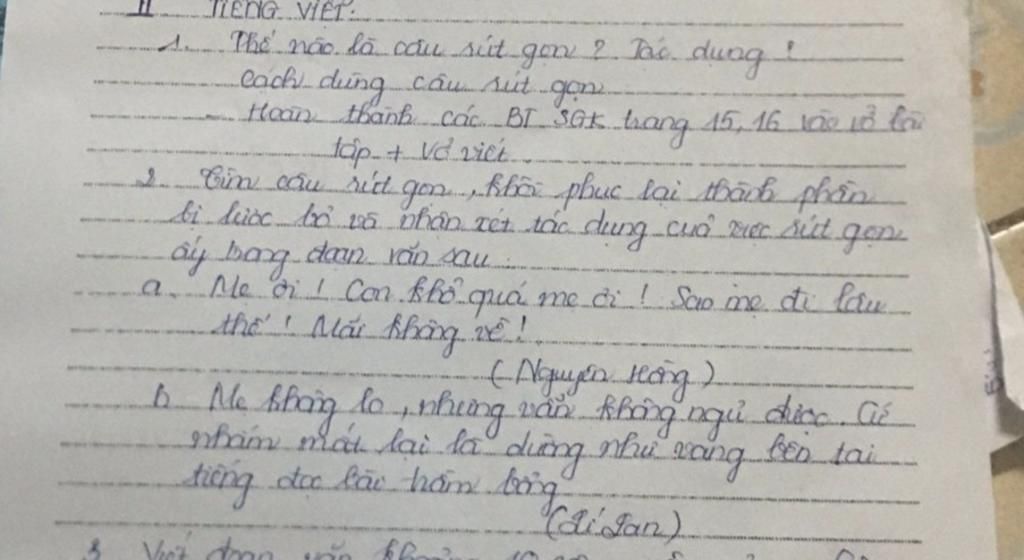 II TIẾNG VIỆT.
1. Thế nào là câu rút gọn? Tác dụng!
cách dùng câu rút gọn
- Hoàn thành các BT SGK trang 15, 16 vào vở bài
tập + Vở viết
2. Tìm câu rút gọn, khôi phục lại thành phần
bị lược bỏ và nhận xét tác dụng của việc rút gọn
ấy trong đoạn văn sau.
a. Mẹ ơi! Con khổ quá mẹ ơi! Sao mẹ đi lâu
thế! Mãi không về!
(Nguyên Hồng)
b Mẹ không lo, nhưng vẫn không ngủ được. Cứ
nhắm mắt lại là dường như vang bên tai
tiếng đọc bài trầm bổng
(Lí Lan)
3 Viết đoạn văn khoảng 10